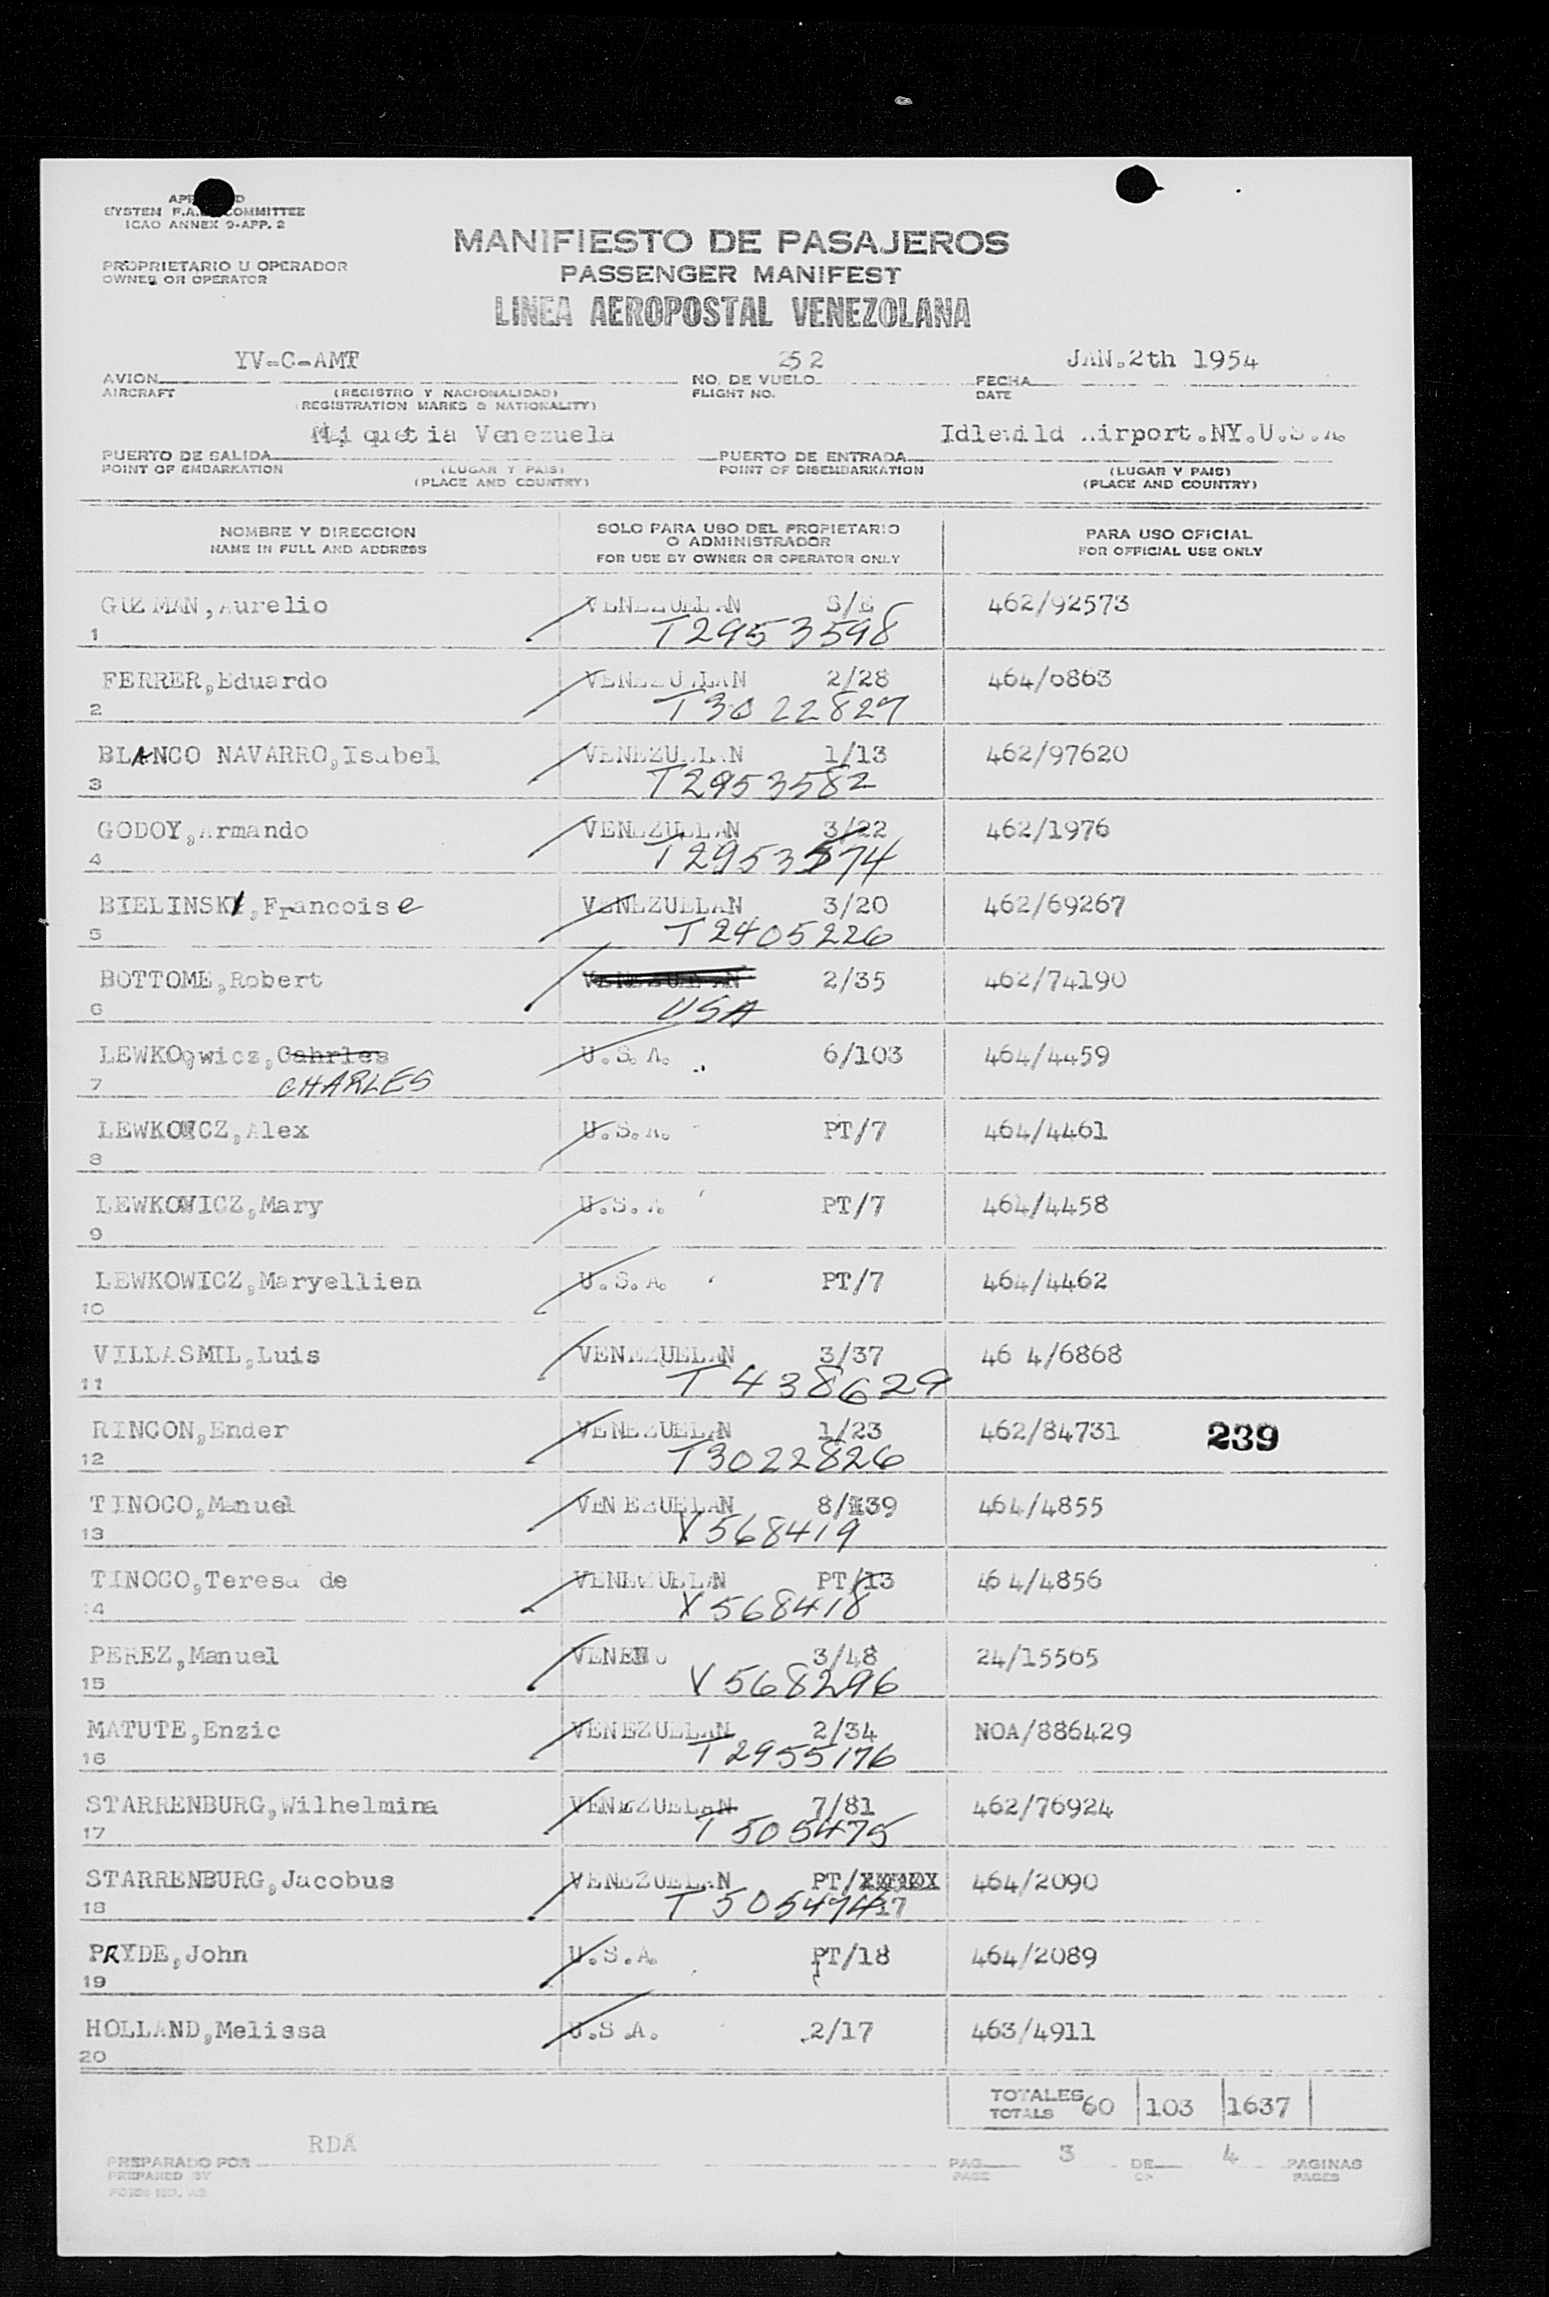 SYSTEM F.A.L. COMMITTEE
ICAO ANNEX 9-APP. 2
MANIFIESTO DE PASAJEROS
PROPRIETARIO U OPERADOR
OWNER OR OPERATOR
PASSENGER MANIFEST
LINEA AEROPOSTAL VENEZOLANA
YV-C-AMT 252 JAN.2th 1954
AVION NO. DE VUELO FECHA
AIRCRAFT (REGISTRO Y NACIONALIDAD) FLIGHT NO. DATE
(REGISTRATION MARKS & NATIONALITY)
Maiquetia Venezuela Idlewild Airport.NY.U.S.A.
PUERTO DE SALIDA PUERTO DE ENTRADA
POINT OF EMBARKATION (LUGAR Y PAIS) POINT OF DISEMBARKATION (LUGAR Y PAIS)
(PLACE AND COUNTRY) (PLACE AND COUNTRY)
NOMBRE Y DIRECCION SOLO PARA USO DEL PROPIETARIO PARA USO OFICIAL
O ADMINISTRADOR
NAME IN FULL AND ADDRESS FOR USE BY OWNER OR OPERATOR ONLY FOR OFFICIAL USE ONLY
GUZMAN,Aurelio VENEZUELAN S/E 462/92573
1 T2953598
FERRER,Eduardo VENEZUELAN 2/28 464/6863
2 T3022827
BLANCO NAVARRO,Isabel VENEZUELAN 1/13 462/97620
3 T2953582
GODOY,Armando VENEZUELAN 3/22 462/1976
4 T2953574
BIELINSKY,Francoise VENEZUELAN 3/20 462/69267
5 T2405226
BOTTOME,Robert VENEZUELAN 2/35 462/74190
6 USA
LEWKOowicz,Cahrles U.S.A. 6/103 464/4459
7 CHARLES
LEWKOWCZ,Alex U.S.A. PT/7 464/4461
8
LEWKOWICZ,Mary U.S.A PT/7 464/4458
9
LEWKOWICZ,Maryellien U.S.A. PT/7 464/4462
10
VILLASMIL,Luis VENEZUELAN 3/37 46 4/6868
11 T438629
RINCON,Ender VENEZUELAN 1/23 462/84731 239
12 T3022826
TINOCO,Manuel VENEZUELAN 8/139 464/4855
13 V568419
TINOCO,Teresa de VENEZUELAN PT/13 46 4/4856
14 V568418
PEREZ,Manuel 3/48 24/15565
15 V568296
MATUTE,Enzic VENEZUELAN 2/34 NOA/886429
16 T2955176
STARRENBURG,Wilhelmina VENEZUELAN 7/81 462/76924
17 T505475
STARRENBURG,Jacobus VENEZUELAN PT/XXXXX 464/2090
18 T505474 17
PRYDE,John U.S.A. PT/18 464/2089
19
HOLLAND,Melissa U.S.A. 2/17 463/4911
20
TOTALES 60 103 1637
TOTALS
RDA
PREPARADO POR PAG. 3 DE 4 PAGINAS
PREPARED BY PAGE OF PAGES